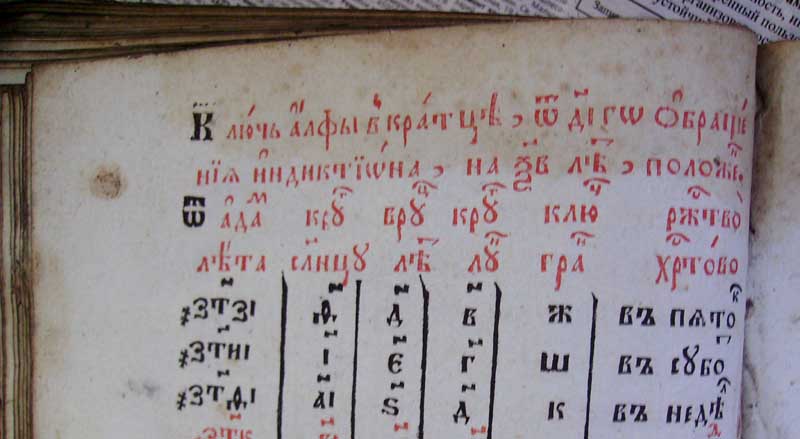 Ключь а҆́лфы вкра́тцѣ, ѿ д҃і гѡ ѻ҆браще
нїѧ и҆ндиктїѡ́на, на лѣⷮ, положеⷩ
ѿ а҆да́ⷨ крꙋⷢ врꙋⷰ крꙋⷢ клюⷱ ржⷭтво̀
лѣ́та сл҃нцꙋ лѣⷮ лꙋⷩ граⷩ хрⷭто́во
҂зтз҃і ѳ҃ д҃ в҃ ж въ пѧтоⷦ
҂зти҃і і҃ є҃ г҃ ш въ сꙋбоⷮ
҂зтѳ҃і а҃і ѕ҃ д҃ к въ недѣⷧ
҂зтк҃